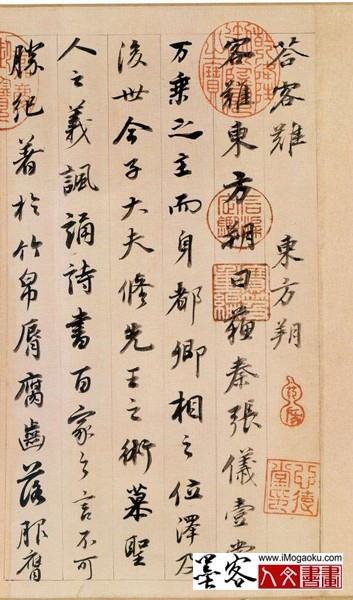 答客難
東方朔
客難東方朔曰蘇秦張儀壹當
万乘之主而身都卿相之位澤及
後世今子大夫修先王之術慕聖
人之義諷誦詩書百家之言不可
勝紀著於竹帛脣腐齒落服膺
www.iMogaoku.com
墨客
人文書畫